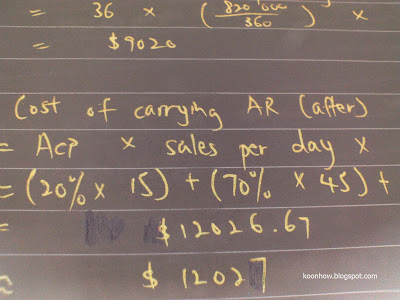 = 36 × (820'000/360) ×
= $9020
Cost of carrying AR (after)
= ACP × sales per day ×
= (20% × 15) + (70% × 45) +
= $12026.67
$ 12027
koonhow.blogspot.com